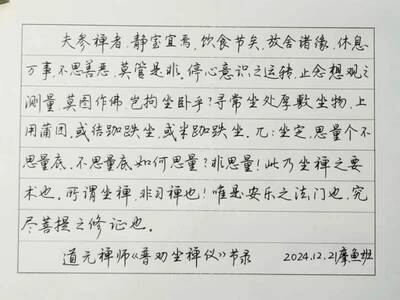 夫参禅者，静室宜焉，饮食节矣，放舍诸缘，休息
万事，不思善恶，莫管是非。停心意识之运转，止念想观之
测量，莫图作佛岂拘坐卧乎？寻常坐处厚敷坐物，上
用蒲团。或结跏趺坐，或半跏趺坐。兀兀坐定，思量个不
思量底。不思量底如何思量？非思量！此乃坐禅之要
术也。所谓坐禅，非习禅也！唯是安乐之法门也，究
尽菩提之修证也。
道元禅师《普劝坐禅仪》节录 2024.12.21摩鱼班